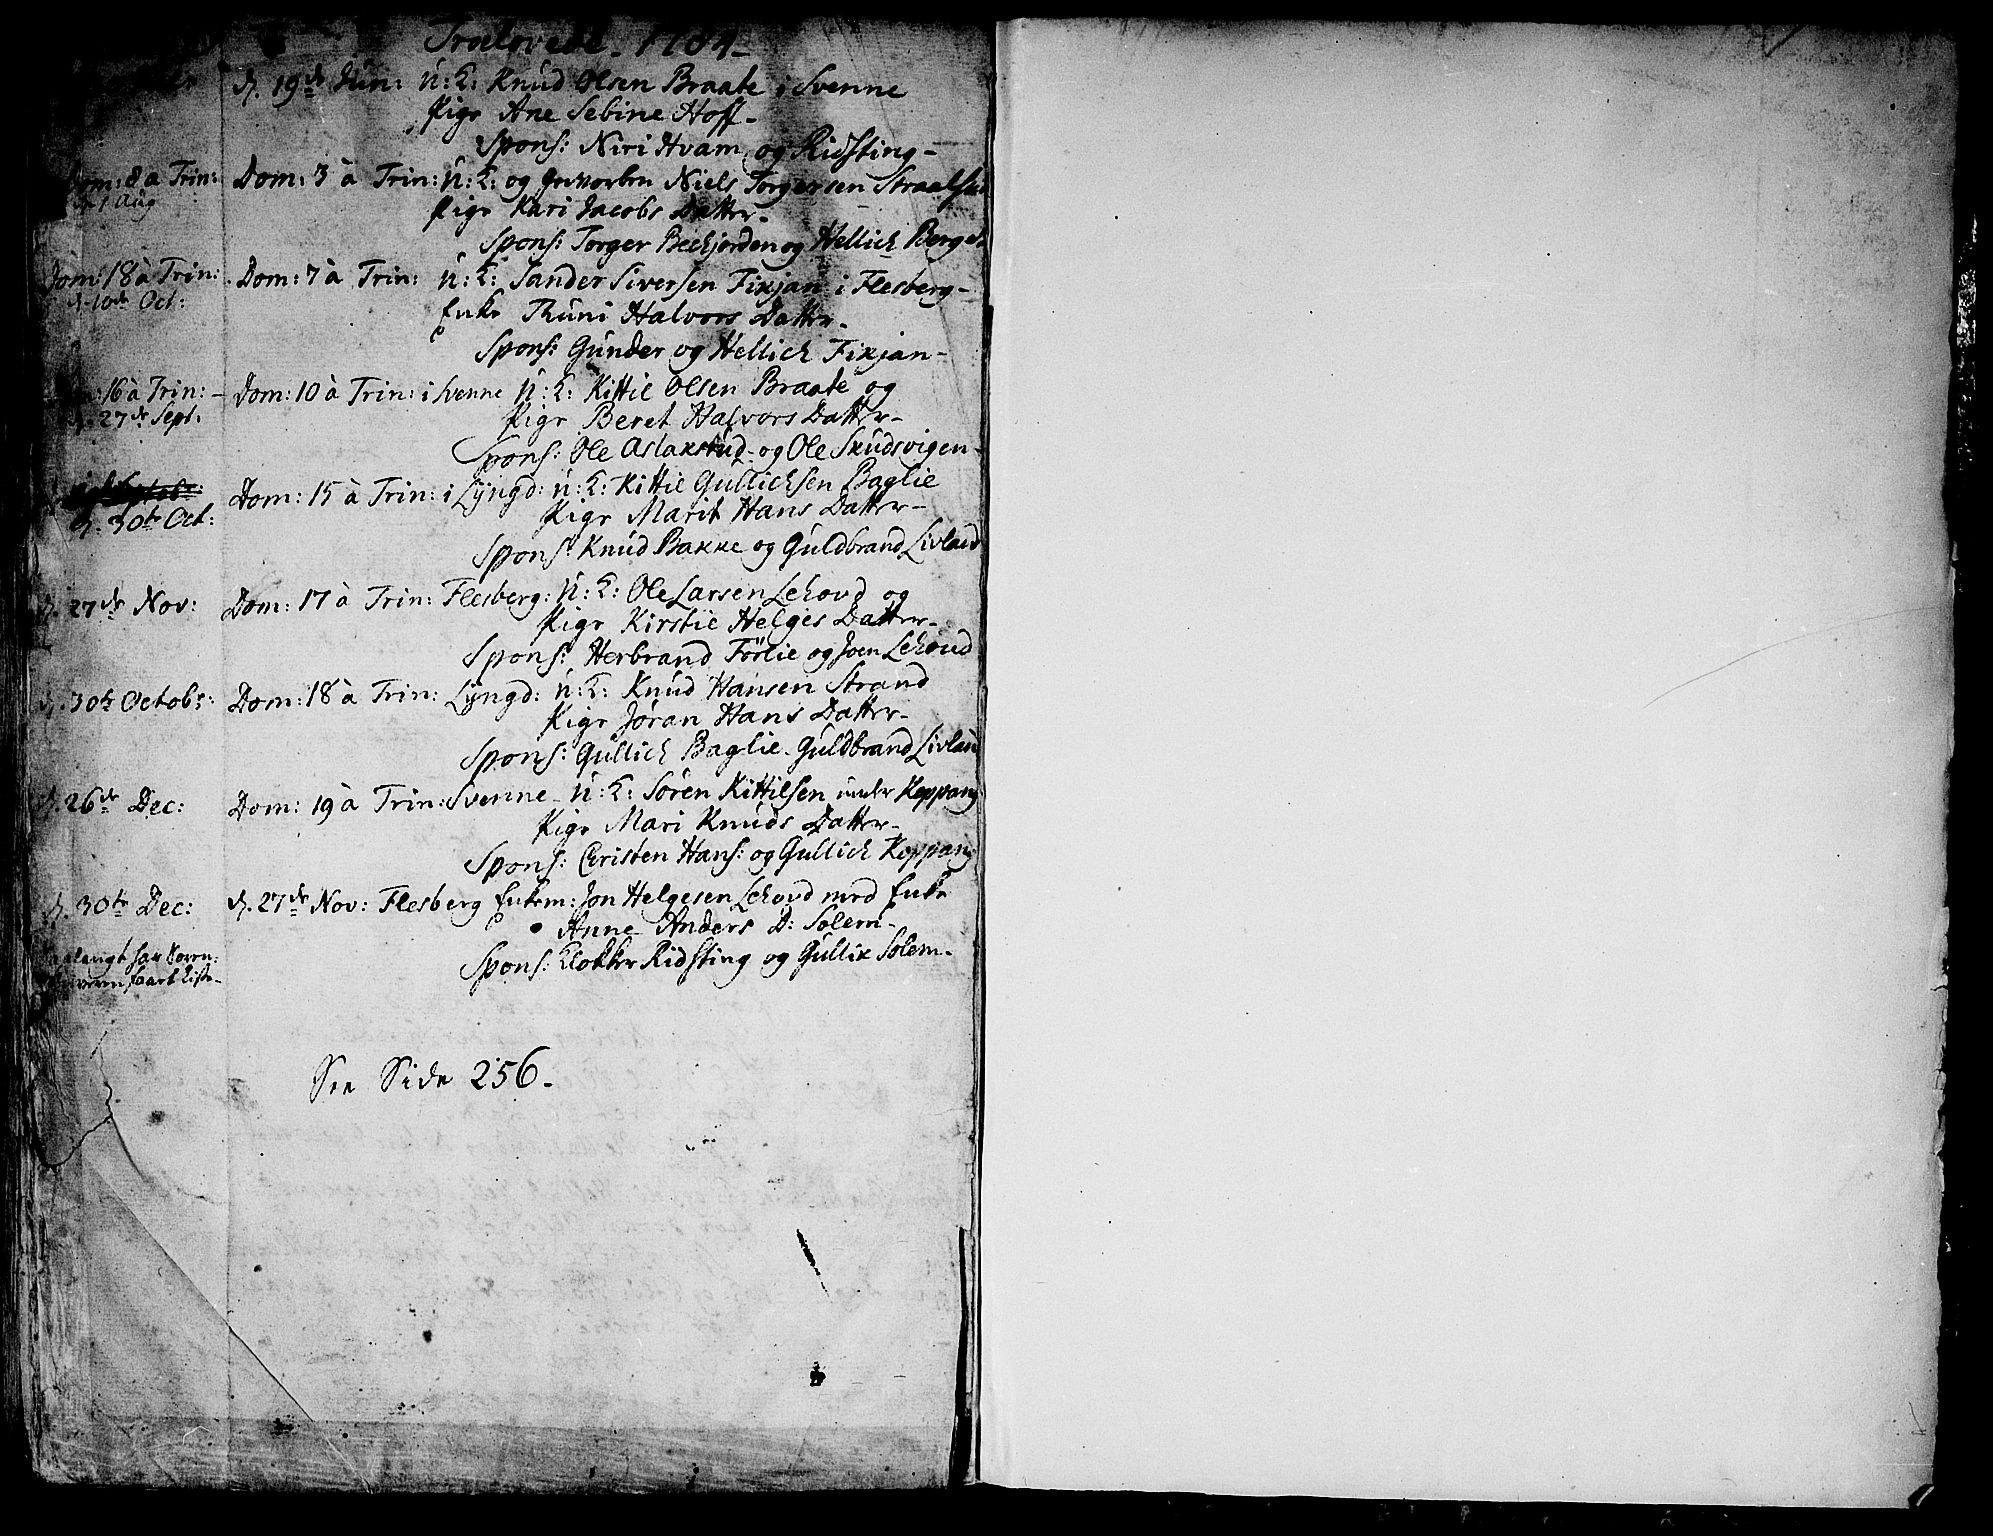 Trolovede 1784
d. 19de Jun: U: K: Knud Olsen Braate i Svenne
Pige Ane Sebine Hoff
Spons: Niri Hvam og Ridsting
Dom: 8 a Trin: Dom: 3 à Trin: U: K: og Niels Torgersen
1 Aug Pige Kari Jacobs Datter
Spons: Torger Bechjorden og Hellich Berget
Dom 18 à Trin: Dom: 7 à Trin: U: K: Sander Siversen Fixjan i Flesberg
d. 10de Oct: Enke Thuni Halvors Datter
Spons: Gunder og Hellich Fixjan
16 à Trin: Dom: 10 à Trin: i Svenne U: K: Kittil Olsen Braate og
d. 27de Sept. Pige Beret Halvors Datter
Spons: Ole Aslakstud og Ole Skudsvigen
Dom: 15 à Trin: i Lyngd: U: K: Kittil Gullichsen Baglie
d. 30te Oct: Pige Marit Hans Datter
Spons: Knud Bakke og Guldbrand Livland
d. 27de Nov: Dom: 17 à Trin: Flesberg: U: K: Ole Larsen Lehovd og
Pige Kirstie Helges Datter
Spons: Herbrand Förlie og Joen Lehovd
d. 30te Octobr: Dom: 18 à Trin: Lyngd: U: K: Knud Hansen Strand
Pige Jøran Hans Datter
Spons: Gullich Baglie Guldbrand Livland
d. 26de Dec: Dom: 19 à Trin: Svenne U: K: Søren Kittilsen under Koppang
Pige Mari Knuds Datter
Spons: Christen Hans: og Gullich Koppang
d. 30te Dec: d. 27de Nov: Flesberg Enkem: Jon Helgesen Lehovd med Enke
Anne Anders D: Solem
Spons: Klokker Ridsting og Gullix Solem
See Side 256